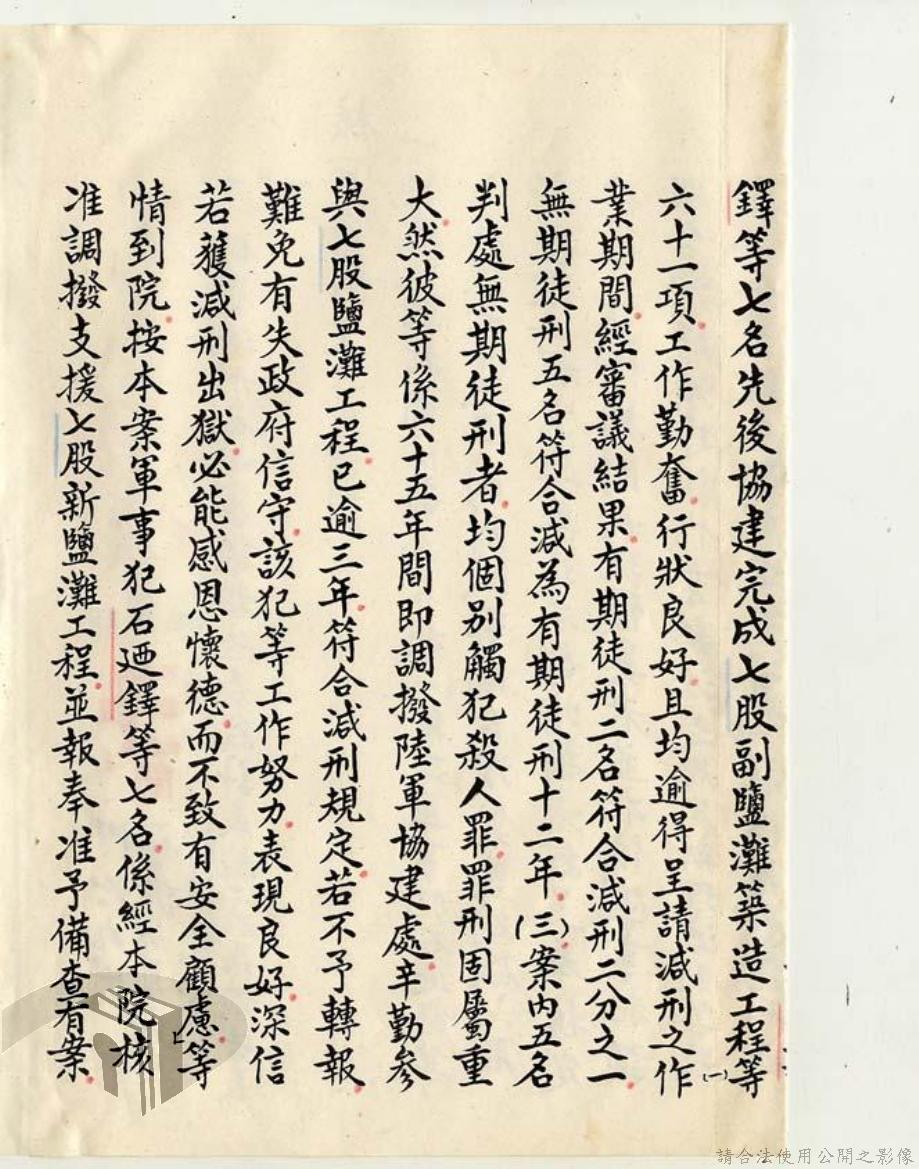 鐸等七名先後協建完成七股副鹽灘築造工程等
六十一項工作勤奮行狀良好且均逾得呈請減刑之作(一)
業期間經審議結果有期徒刑二名符合減刑二分之一
無期徒刑五名符合減為有期徒刑十二年(三)案內五名
判處無期徒刑者均個別觸犯殺人罪罪刑固屬重
大然彼等係六十五年間即調撥陸軍協建處辛勤參
與七股鹽灘工程已逾三年符合減刑規定若不予轉報
難免有失政府信守該犯等工作努力表現良好深信
若獲減刑出獄必能感恩懷德而不致有安全顧慮」等
情到院按本案軍事犯石迺鐸等七名係經本院核
准調撥支援七股新鹽灘工程並報奉准予備查有案
請合法使用公開之影像